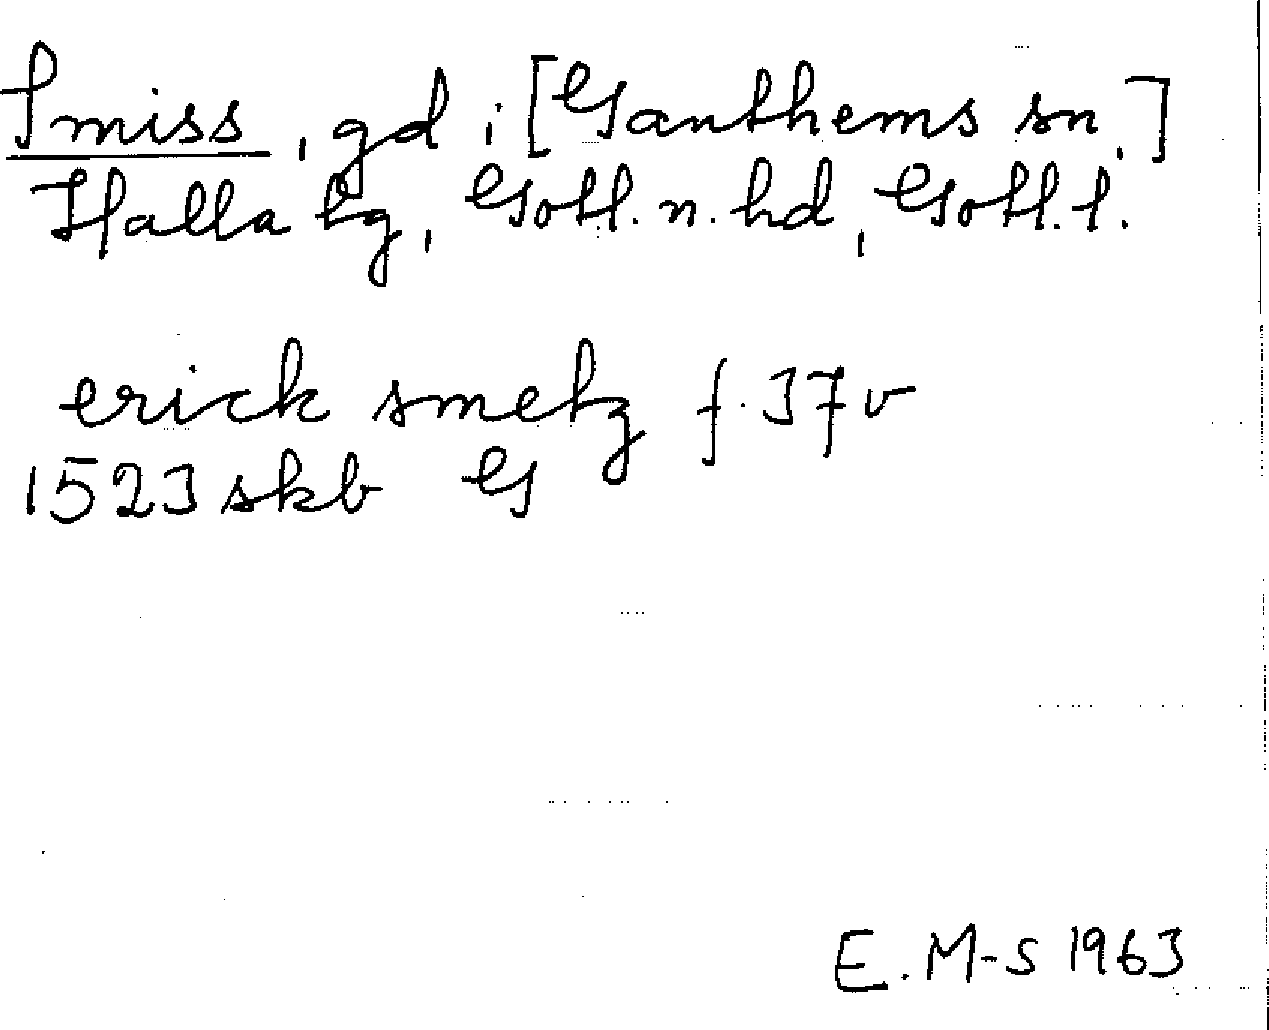 Smiss, gd i [Ganthems sn,]
Halla tg, Gotl. n. hd, Gotl. l.
erick smetz f. 37v
1523 skb G
E. M-S 1963